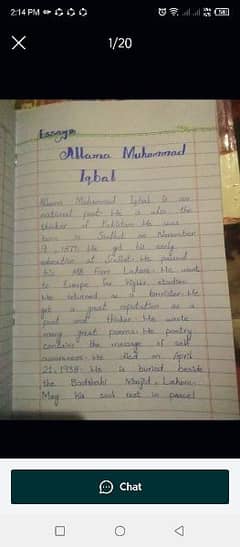 2:14 PM
1/20
Essays
Allama Muhammad
Iqbal
Allama Muhammad Iqbal is our
national poet. He is also the
thinker of Pakistan. He was
born in Sialkot on November
9, 1877. He got his early
education at Sialkot. He passed
his MA from Lahore. He went
to Europe for higher studies.
He returned as a barrister. He
got a great reputation as a
poet and thinker. He wrote
many great poems. His poetry
contains the message of self
awareness. He died on April
21, 1938. He is buried beside
the Badshahi Masjid, Lahore.
May his soul rest in peace!
Chat